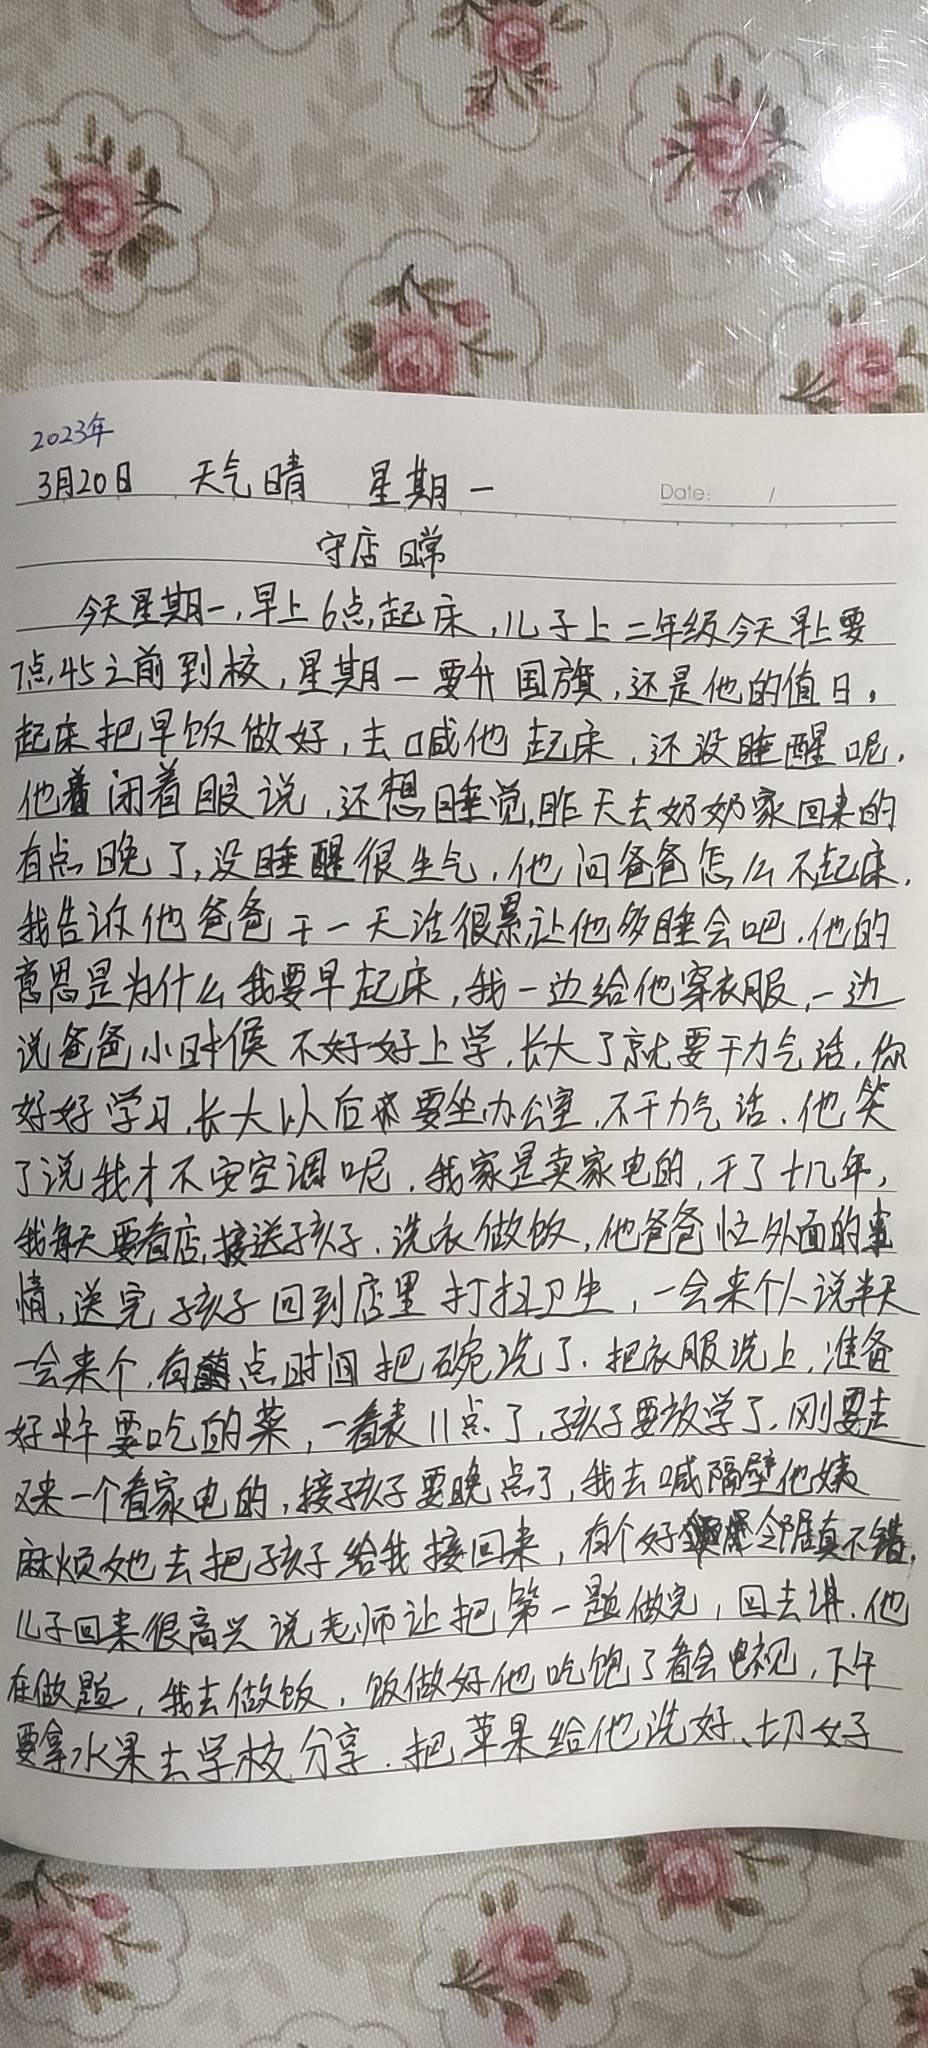 2023年
3月20日 天气晴 星期一
Date: /
守店日常
今天星期一,早上6点起床,儿子上二年级今天早上要
7点45之前到校,星期一要升国旗,还是他的值日。
起床把早饭做好,去喊他起床,还没睡醒呢,
他闭着眼说,还想睡觉,昨天去奶奶家回来的
有点晚了,没睡醒很生气,他问爸爸怎么不起床,
我告诉他爸爸干一天活很累让他多睡会吧.他的
意思是为什么我要早起床,我一边给他穿衣服,一边
说爸爸小时候不好好上学,长大了就要干力气活,你
好好学习,长大以后要坐办公室,不干力气活.他笑
了说我才不安空调呢.我家是卖家电的,干了十几年,
我每天要看店,接送孩子.洗衣做饭,他爸爸忙外面的事
情,送完孩子回到店里打扫卫生,一会来个人说半天
一会来个,有点时间把碗洗了.把衣服洗上,准备
好中午要吃的菜,一看表11点了,孩子要放学了.刚要走
又来一个看家电的,接孩子要晚点了,我去喊隔壁他姨
麻烦她去把孩子给我接回来,有个好邻居真不错.
儿子回来很高兴说老师让把第一题做完,回去讲.他
在做题,我去做饭,饭做好他吃饱了看会电视,下午
要拿水果去学校分享.把苹果给他洗好、切好